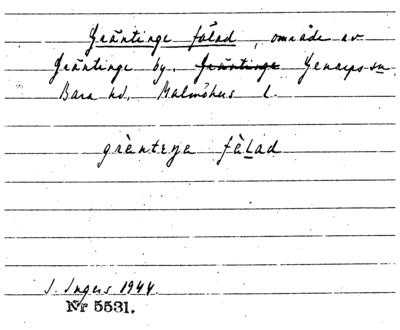 Gräntinge fälad, område av
Gräntinge by, Gräntinge Genarps sn
Bara hd, Malmöhus l.
grànteɲa fà̱lad
I. Ingers 1944.
Nr 5531.